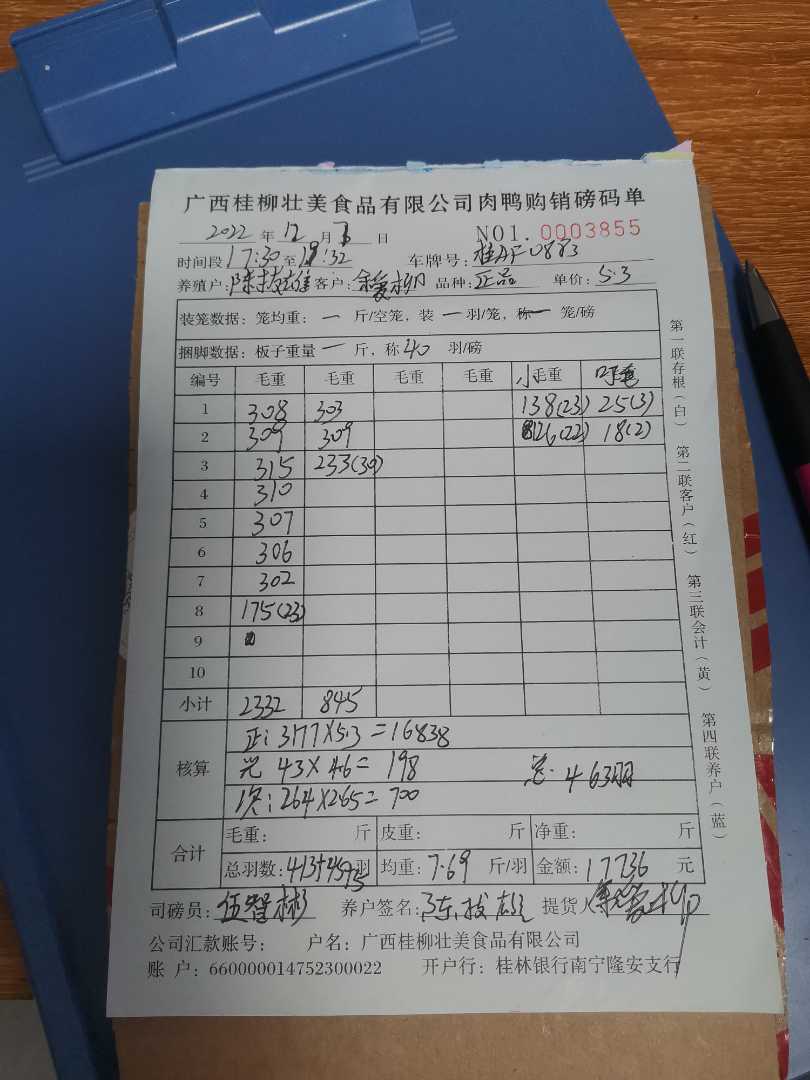 广西桂柳壮美食品有限公司肉鸭购销磅码单
2022 年 12 月 日 NO1. 0003855
时间段 17:30 至 :32 车牌号: 0883
养殖户: 陈拔雄 客户: 柳 品种: 正品 单价: 5.3
装笼数据: 笼均重: 一 斤/空笼, 装 一 羽/笼, 称 一 笼/磅
捆脚数据: 板子重量 一 斤, 称 40 羽/磅
编号 毛重 毛重 毛重 毛重 小毛重
1 308 303 138(23) 25(3)
2 309 309 126(22) 18(2)
3 315 233(30)
4 310
5 307
6 306
7 302
8 175(23)
9
10
小计 2332 845
核算 正: 3177×5.3=16838
光 43×4.6= 198 总. 463羽
次: 264×2.65= 700
合计 毛重: 斤 皮重: 斤 净重: 斤
总羽数: 413+45+5 羽 均重: 7.69 斤/羽 金额: 17736 元
司磅员: 伍智彬 养户签名: 陈拔雄 提货人
公司汇款账号: 户名: 广西桂柳壮美食品有限公司
账 户: 660000014752300022 开户行: 桂林银行南宁隆安支行
第一联存根(白) 第二联客户(红) 第三联会计(黄) 第四联养户(蓝)